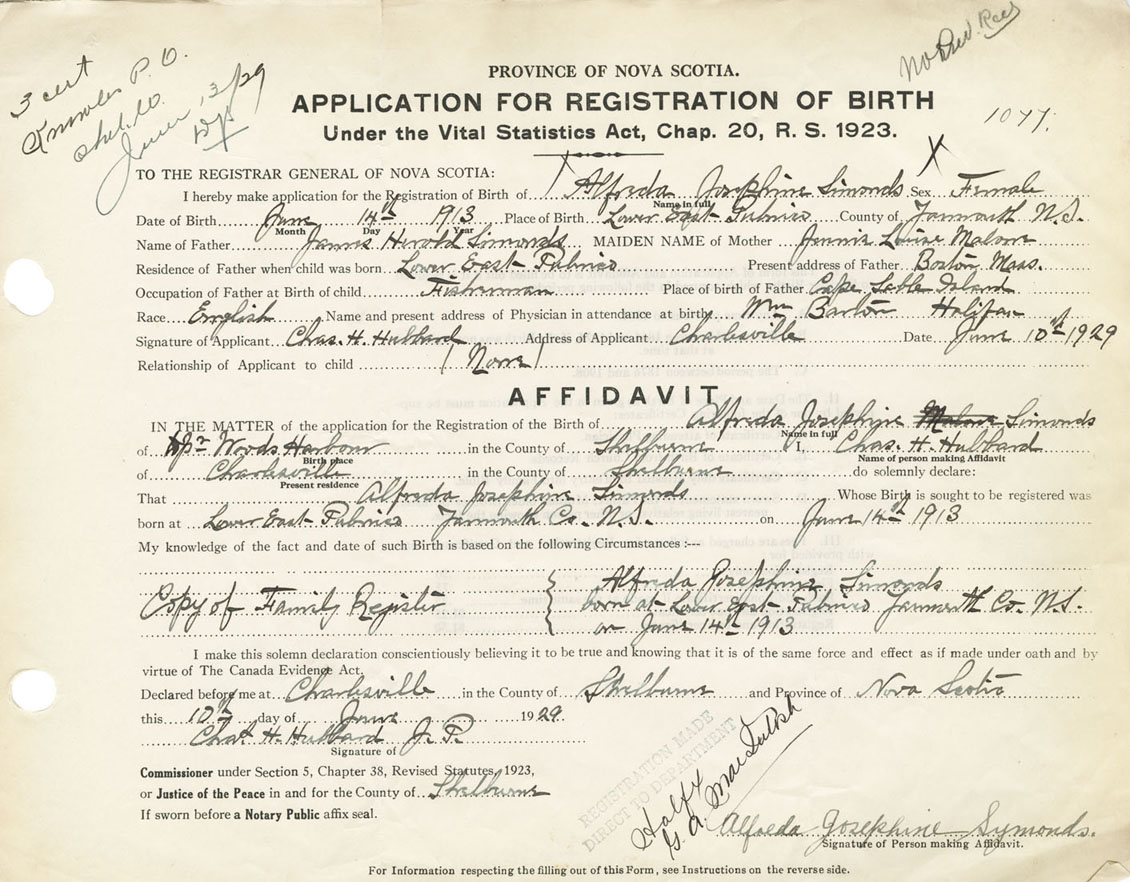 No Prev. Rec
3 cert
Knowles P. O.
Shel. Co.
June 13/29
PROVINCE OF NOVA SCOTIA.
APPLICATION FOR REGISTRATION OF BIRTH
Under the Vital Statistics Act, Chap. 20, R. S. 1923.
1077.
X
TO THE REGISTRAR GENERAL OF NOVA SCOTIA:
I hereby make application for the Registration of Birth of Alfreda Josephine Simonds Sex Female
Name in full
Date of Birth June 14th 1913 Place of Birth Lower East Pubnico County of Yarmouth N.S.
Month Day Year
Name of Father James Herold Simonds MAIDEN NAME of Mother Jennie Louise Malone
Residence of Father when child was born Lower East Pubnico Present address of Father Boston Mass.
Occupation of Father at Birth of child Fisherman Place of birth of Father Cape Sable Island
Race English Name and present address of Physician in attendance at birth Wm Barton Halifax
Signature of Applicant Chas. H. Hubbard Address of Applicant Charlesville Date June 10th 1929
Relationship of Applicant to child (None)
AFFIDAVIT
IN THE MATTER of the application for the Registration of the Birth of Alfreda Josephine Malone Simonds
Name in full
of Upr Woods Harbour in the County of Shelburne I, Chas. H. Hubbard
Birth place Name of person making Affidavit
of Charlesville in the County of Shelburne do solemnly declare:
Present residence
That Alfreda Josephine Simonds Whose Birth is sought to be registered was
born at Lower East Pubnico Yarmouth Co. N.S. on June 14th 1913
My knowledge of the fact and date of such Birth is based on the following Circumstances :--
Alfreda Josephine Simonds
Copy of Family Register born at Lower East Pubnico Yarmouth Co. N.S.
on June 14th 1913
I make this solemn declaration conscientiously believing it to be true and knowing that it is of the same force and effect as if made under oath and by
virtue of The Canada Evidence Act.
Declared before me at Charlesville in the County of Shelburne and Province of Nova Scotia
this 10th day of June 1929.
Chas. H. Hubbard J. P.
Signature of
REGISTRATION MADE
DIRECT TO DEPARTMENT
Commissioner under Section 5, Chapter 38, Revised Statutes, 1923,
or Justice of the Peace in and for the County of Shelburne
If sworn before a Notary Public affix seal.
Halfx
Alfreda Josephine Symonds.
Signature of Person making Affidavit.
For Information respecting the filling out of this Form, see Instructions on the reverse side.